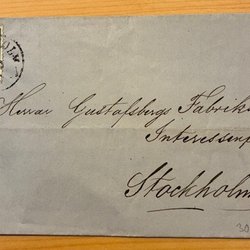 OLM
Herrar Gustafsbergs Fabriks
Interessent
Stockholm